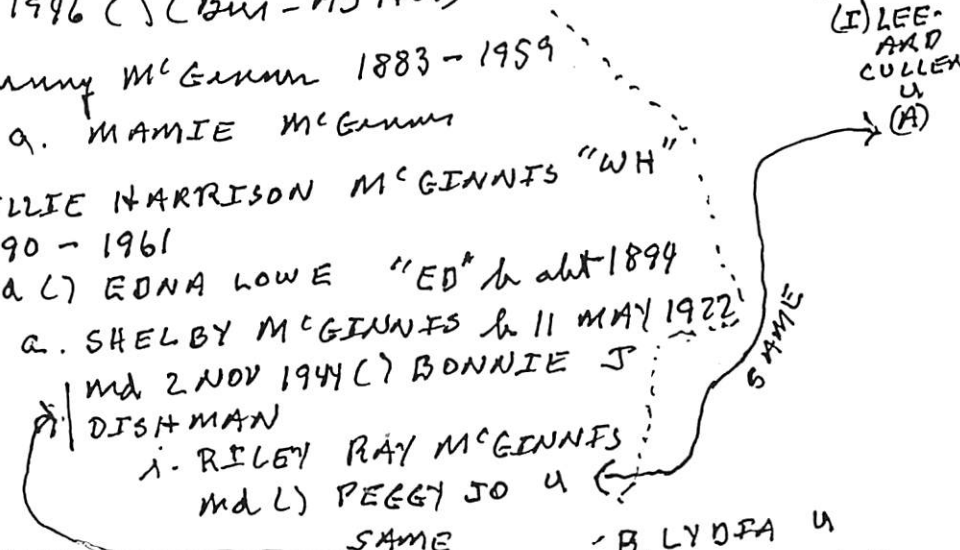 1996 ( ) (
(I) LEE-
ARD
CULLEN
U
(A)
McGinnis 1883 - 1959
a. MAMIE McGinnis
LLIE HARRISON McGINNIS "WH"
90 - 1961
d ( ) EDNA LOWE "ED" b abt 1894
a. SHELBY McGINNIS b 11 MAY 1922
md 2 NOV 1944 ( ) BONNIE J
DISHMAN
SAME
i. RILEY RAY McGINNIS
md ( ) PEGGY JO U
SAME
B LYDIA U